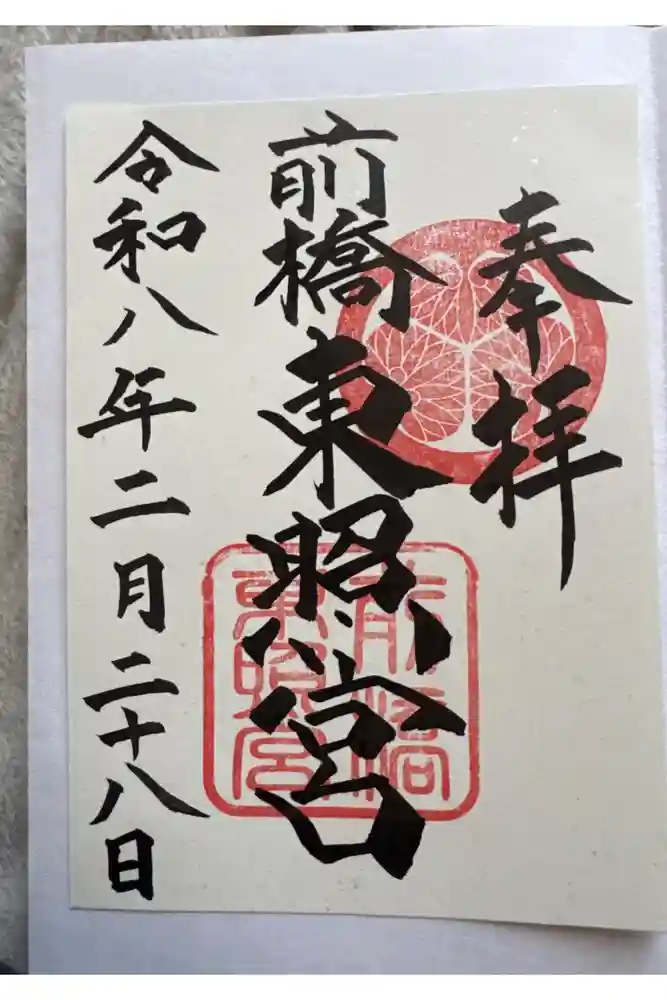 奉拝
前橋東照宮
令和八年二月二十八日
前橋
東照宮